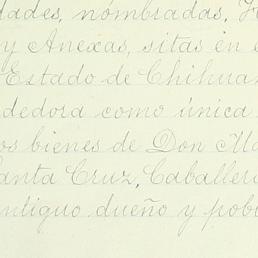 dades, nombradas,
y Anexas, sitas en e
Estado de Chihua
dedora como única
os bienes de Don Ma
anta Cruz, Caballero
ntiguo dueño y pob